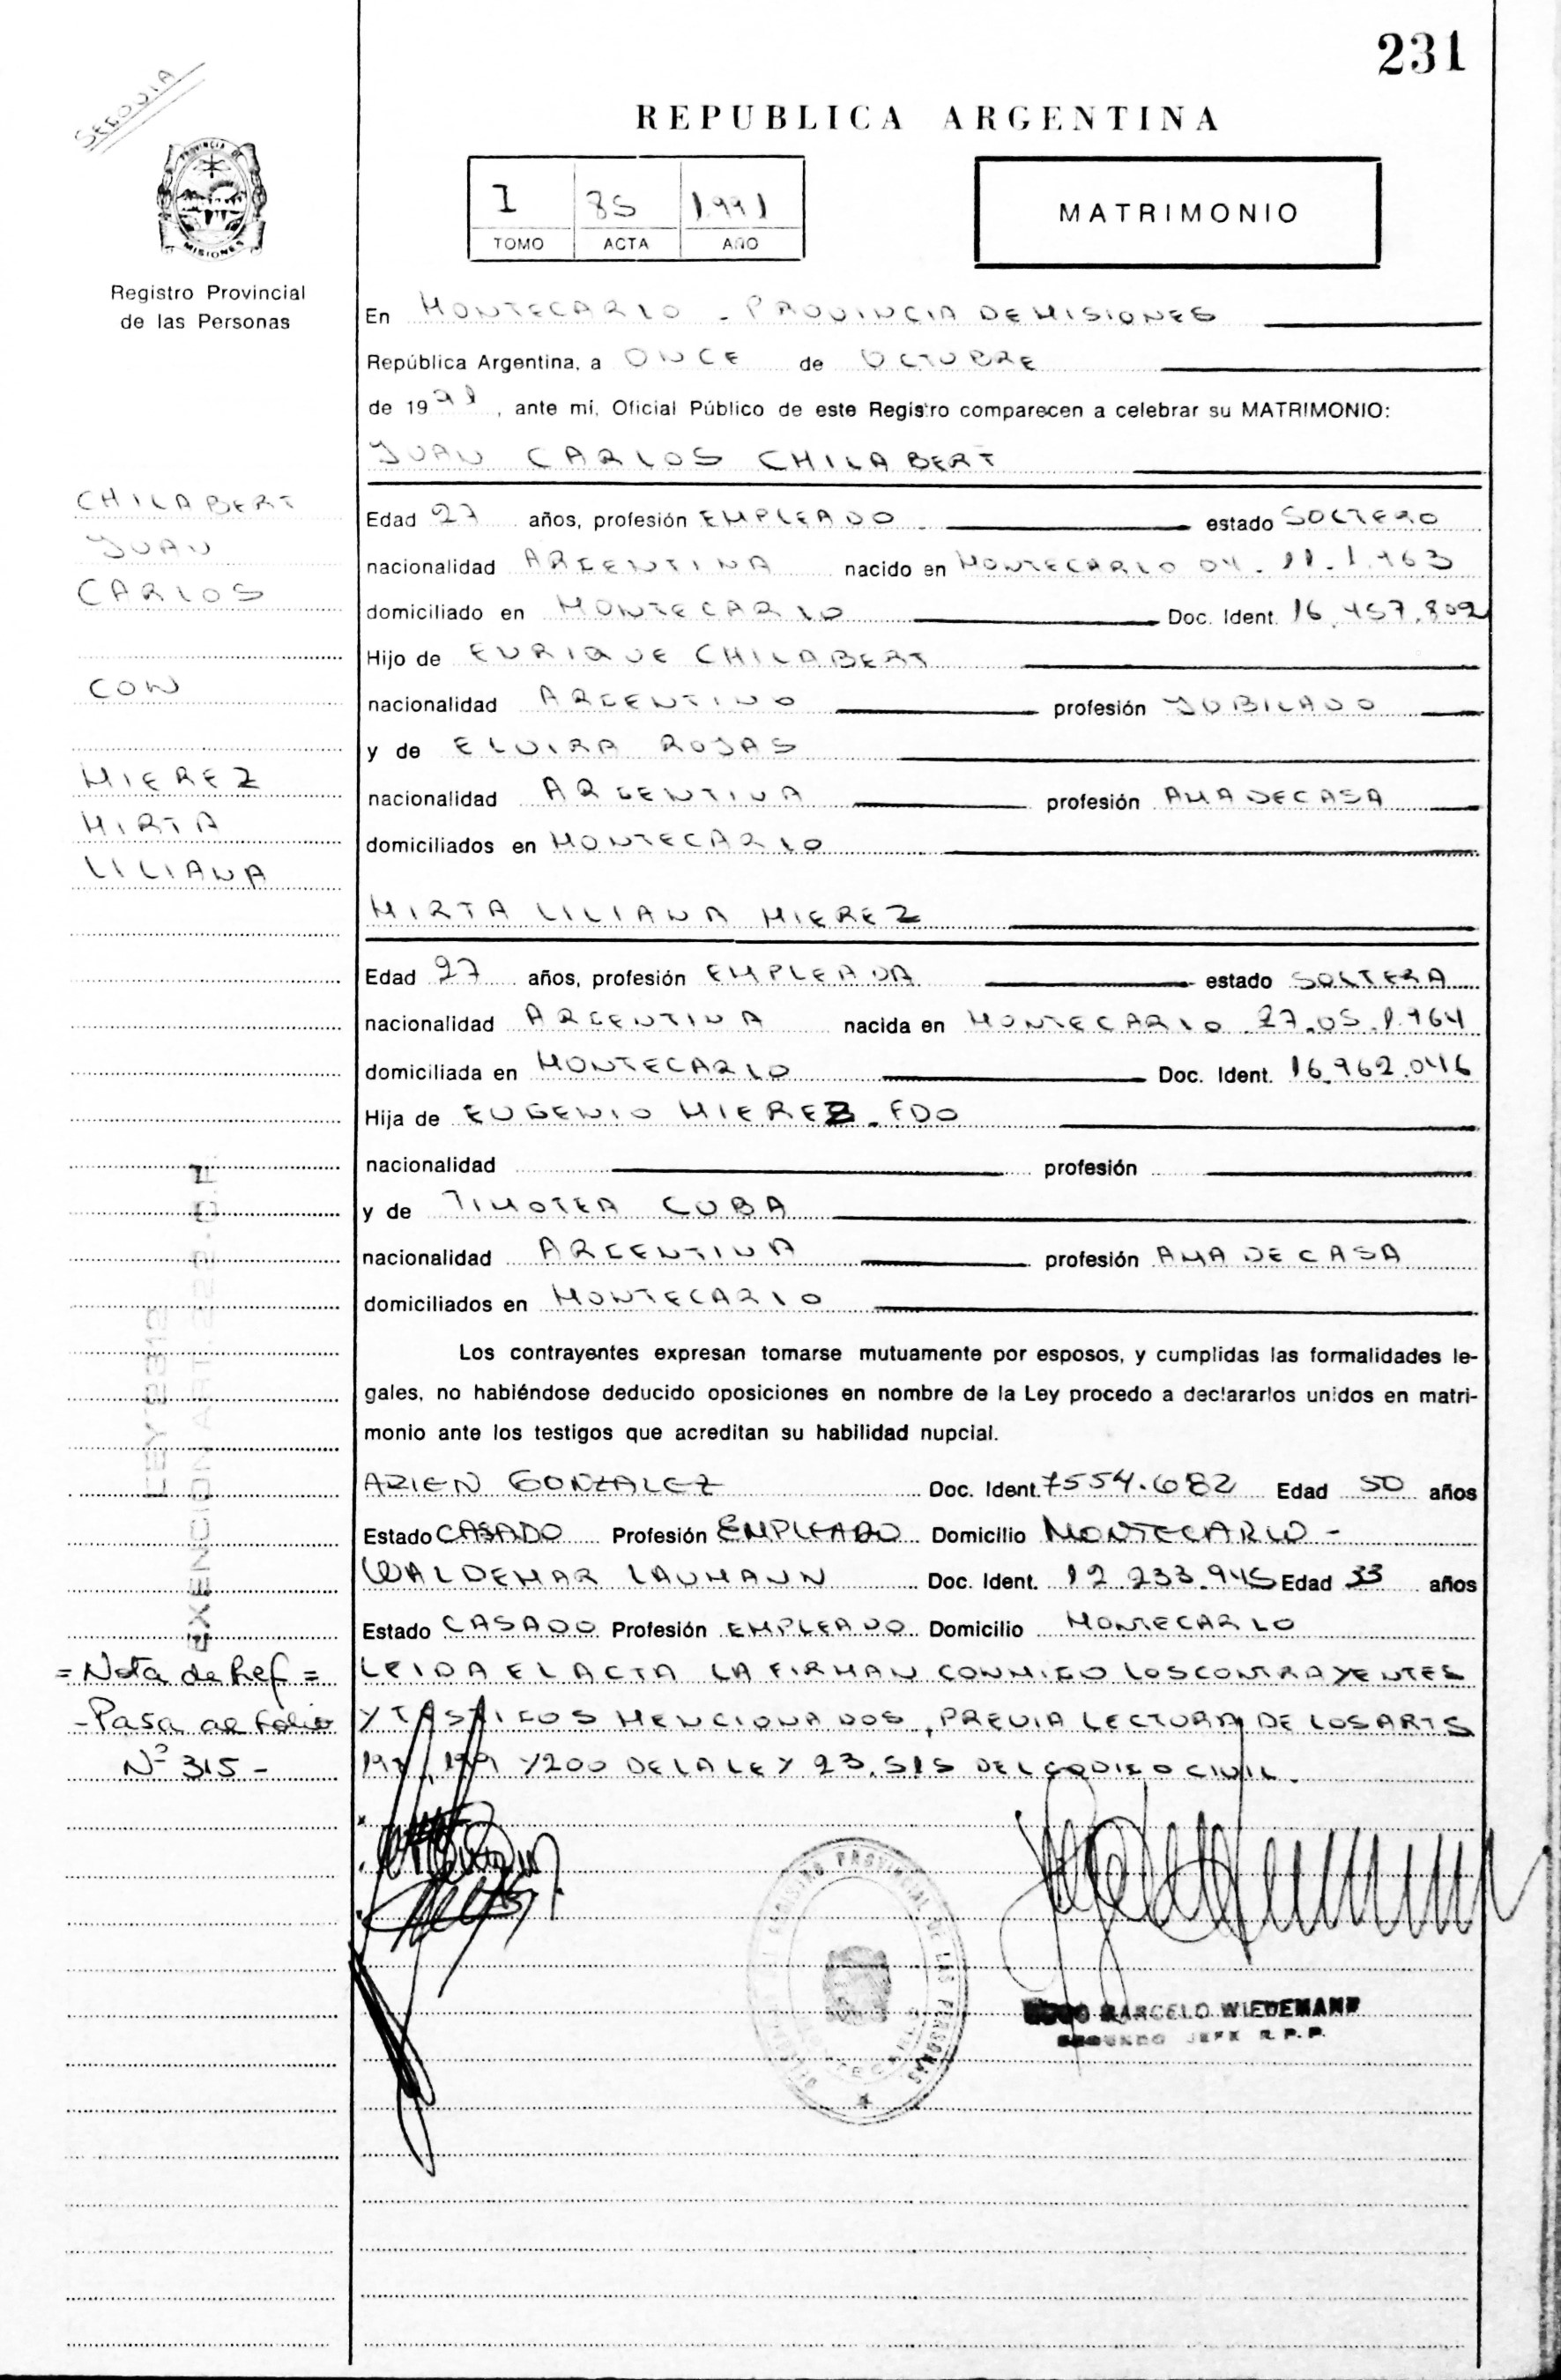 231
SEGOVIA
REPUBLICA ARGENTINA
PROVINCIA DE
MISIONES
Registro Provincial
de las Personas
I 85 1991
TOMO ACTA AÑO
MATRIMONIO
En MONTECARLO - PROVINCIA DE MISIONES
República Argentina, a ONCE de OCTUBRE
de 1991, ante mí, Oficial Público de este Registro comparecen a celebrar su MATRIMONIO:
JUAN CARLOS CHILABERT
Edad 27 años, profesión EMPLEADO estado SOLTERO
nacionalidad ARGENTINA nacido en MONTECARLO 04.11.1.963
domiciliado en MONTECARLO Doc. Ident. 16.457.802
Hijo de ENRIQUE CHILABERT
nacionalidad ARGENTINO profesión JUBILADO
y de ELVIRA ROJAS
nacionalidad ARGENTINA profesión AMA DE CASA
domiciliados en MONTECARLO
MIRTA LILIANA MIEREZ
Edad 27 años, profesión EMPLEADA estado SOLTERA
nacionalidad ARGENTINA nacida en MONTECARLO 27.05.1.964
domiciliada en MONTECARLO Doc. Ident. 16.962.046
Hija de EUGENIO MIEREZ - FDO
nacionalidad profesión
y de TIMOTEA CUBA
nacionalidad ARGENTINA profesión AMA DE CASA
domiciliados en MONTECARLO
Los contrayentes expresan tomarse mutuamente por esposos, y cumplidas las formalidades le-
gales, no habiéndose deducido oposiciones en nombre de la Ley procedo a declararlos unidos en matri-
monio ante los testigos que acreditan su habilidad nupcial.
ARIEN GONZALEZ Doc. Ident. 7554.682 Edad 50 años
Estado CASADO Profesión EMPLEADO Domicilio MONTECARLO -
WALDEMAR LAUMANN Doc. Ident. 12.233.945 Edad 33 años
Estado CASADO Profesión EMPLEADO Domicilio MONTECARLO
LEIDA EL ACTA LA FIRMAN CONMIGO LOS CONTRAYENTES
Y TESTIGOS MENCIONADOS, PREVIA LECTURA DE LOS ARTS
198, 199 Y 200 DE LA LEY 23.515 DEL CODIGO CIVIL.
MARCELO WIEDEMANN
SEGUNDO JEFE R.P.P.
REGISTRO PROVINCIAL DE LAS PERSONAS
CHILABERT
JUAN
CARLOS
CON
MIEREZ
MIRTA
LILIANA
EXENCION ART.
LEY 2312
= Nota de Ref =
- Pasa al folio
Nº 315 -